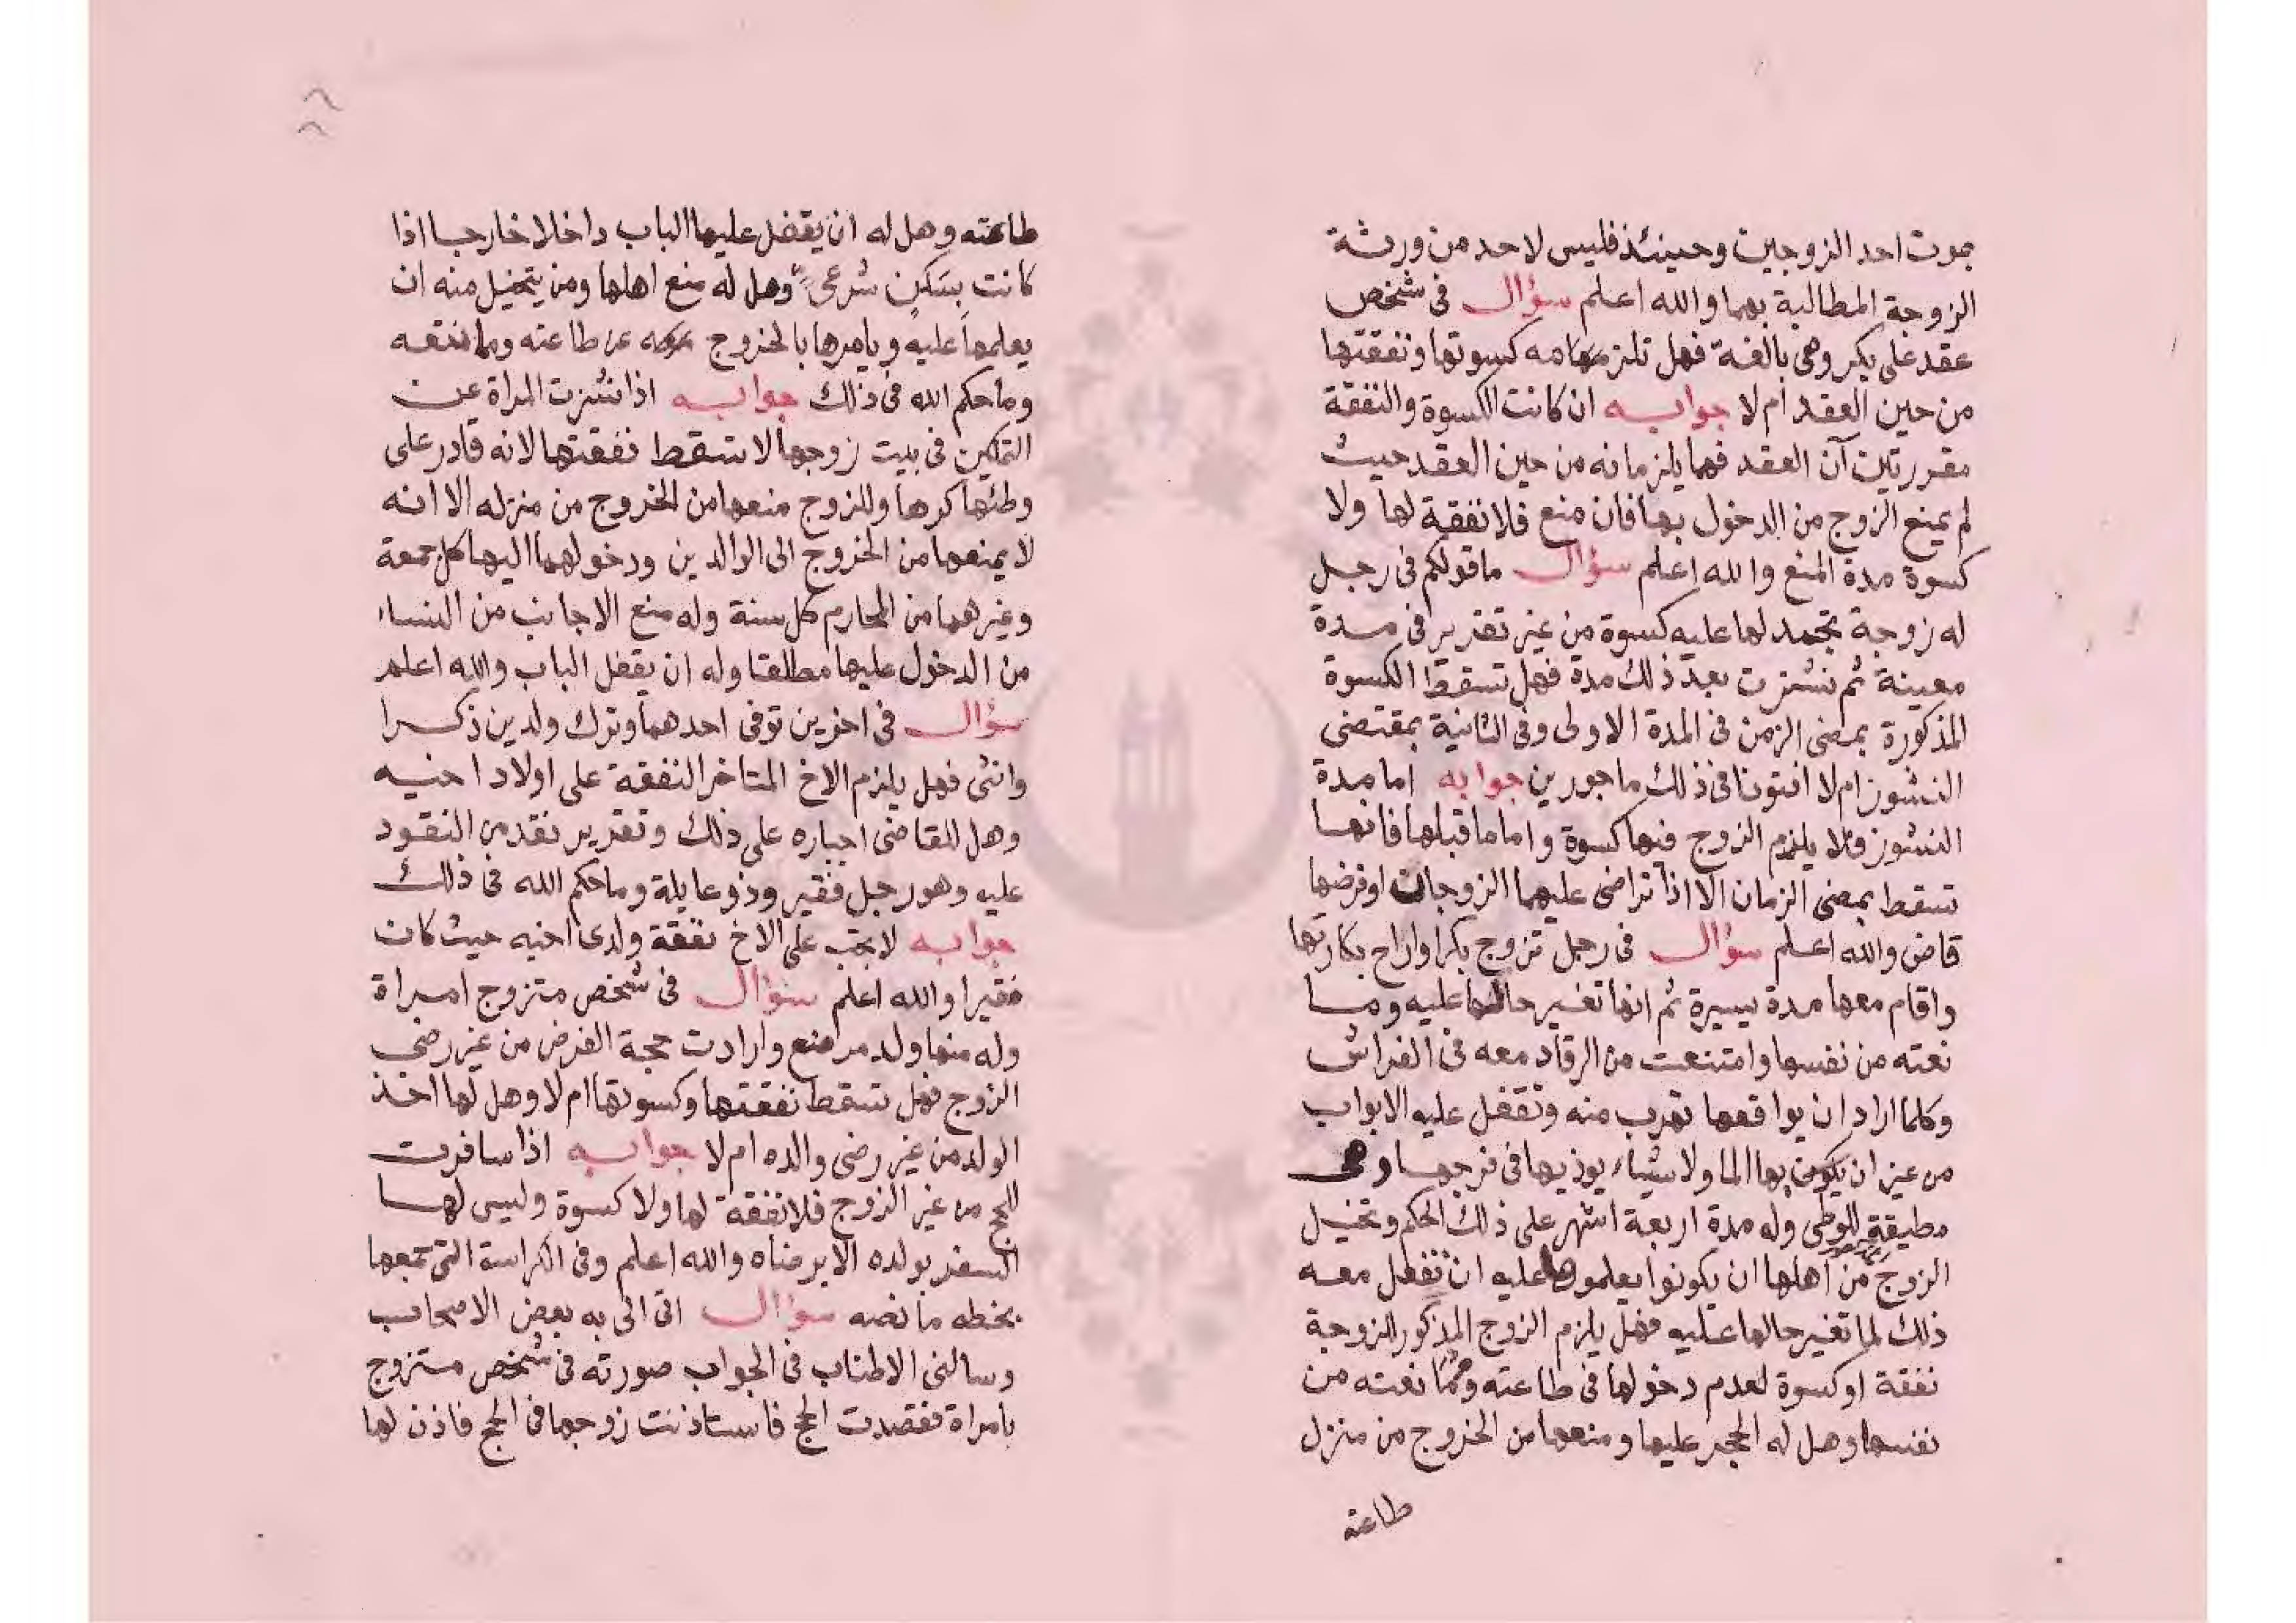 بموت احد الزوجين وحينئذ فليس لاحد من ورثة
الزوجة المطالبة بهما والله اعلم سؤال فى شخص
عقد على بكر وهى بالغة فهل تلزمه كسوتها ونفقتها
من حين العقد ام لا جوابه ان كانت الكسوة والنفقة
مقررتين آن العقد فهما يلزمانه من حين العقد حيث
لم يمنع الزوج من الدخول بها فان منع فلا نفقة لها ولا
كسوة مدة المنع والله اعلم سؤال ما قولكم فى رجل
له زوجة تجمد لها عليه كسوة من غير تقدير فى مدة
معينة ثم نشزت بعد ذلك مدة فهل تسقط الكسوة
المذكورة بمضى الزمن فى المدة الاولى وفى الثانية بمقتضى
النشوز ام لا افتونا فى ذلك ماجورين جوابه اما مدة
النشوز فلا يلزم الزوج فيها كسوة واما ما قبلها فانها
تسقط بمضى الزمان الا اذا تراضى عليهما الزوجان او فرضها
قاض والله اعلم سؤال فى رجل تزوج بكرا وازاح بكارتها
واقام معها مدة يسيرة ثم انها تغير حالها عليه وما
نعته من نفسها وامتنعت من الرقاد معه فى الفراش
وكلما اراد ان يواقعها تهرب منه وتقفل عليه الابواب
من غير ان يكون بها الما ولا شياء يوذيها فى فرجها وهى
مطيقة للوطى وله مدة اربعة اشهر على ذلك الحكم وتخيل
الزوج من اهلها ان يكونوا يعلموها عليه ان تفعل معه
ذلك لما تغير حالها عليه فهل يلزم الزوج المذكور للزوجة
نفقة او كسوة لعدم دخولها فى طاعته وممانعته من
نفسها وهل له الحجر عليها ومنعها من الخروج من منزل
طاعته
طاعته وهل له ان يقفل عليها الباب داخلا خارجا اذا
كانت بسكن شرعى وهل له منع اهلها ومن يتخيل منه ان
يعلمها عليه ويامرها بالخروج عن طاعته وممانعته
وما حكم الله فى ذلك جوابه اذا نشزت المراة عن
التمكين فى بيت زوجها لا تسقط نفقتها لانه قادر على
وطئها كرها وللزوج منعها من الخروج من منزله الا انه
لا يمنعها من الخروج الى الوالدين ودخولهما اليها كل جمعة
وغيرهما من المحارم كل سنة وله منع الاجانب من النساء
من الدخول عليها مطلقا وله ان يقفل الباب والله اعلم
سؤال فى اخوين توفى احدهما وترك ولدين ذكرا
وانثى فهل يلزم الاخ المتاخر النفقة على اولاد اخيه
وهل للقاضى اجباره على ذلك وتقدير نقد من النقود
عليه وهو رجل فقير وذو عايلة وما حكم الله فى ذلك
جوابه لا يجب على الاخ نفقة ولدى اخيه حيث كان
فقيرا والله اعلم سؤال فى شخص متزوج امراة
وله منها ولد مرضع وارادت حجة الفرض من غير رضى
الزوج فهل تسقط نفقتها وكسوتها ام لا وهل لها اخذ
الولد من غير رضى والده ام لا جوابه اذا سافرت
للحج من غير الزوج فلا نفقة لها ولا كسوة وليس لها
السفر بولده الا برضاه والله اعلم وفى الكراسة التى جمعها
بخطه ما نصه سؤال اتى الى به بعض الاصحاب
وسالنى الاطناب فى الجواب صورته فى شخص متزوج
بامراة فقصدت الحج فاستاذنت زوجها فى الحج فاذن لها